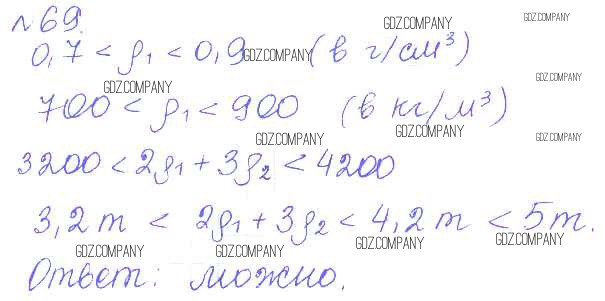 №69. GDZ.COMPANY GDZ.COMPANY
0,7 < ρ₁ < 0,9 GDZ.COMPANY (в г/см³)
GDZ.COMPANY GDZ.COMPANY
700 < ρ₁ < 900 (в кг/м³)
GDZ.COMPANY GDZ.COMPANY GDZ.COMPANY
3200 < 2ρ₁ + 3ρ₂ < 4200
3,2 т < 2ρ₁ + 3ρ₂ < 4,2 т < 5т.
GDZ.COMPANY GDZ.COMPANY GDZ.COMPANY GDZ.COMPANY
Ответ: можно.